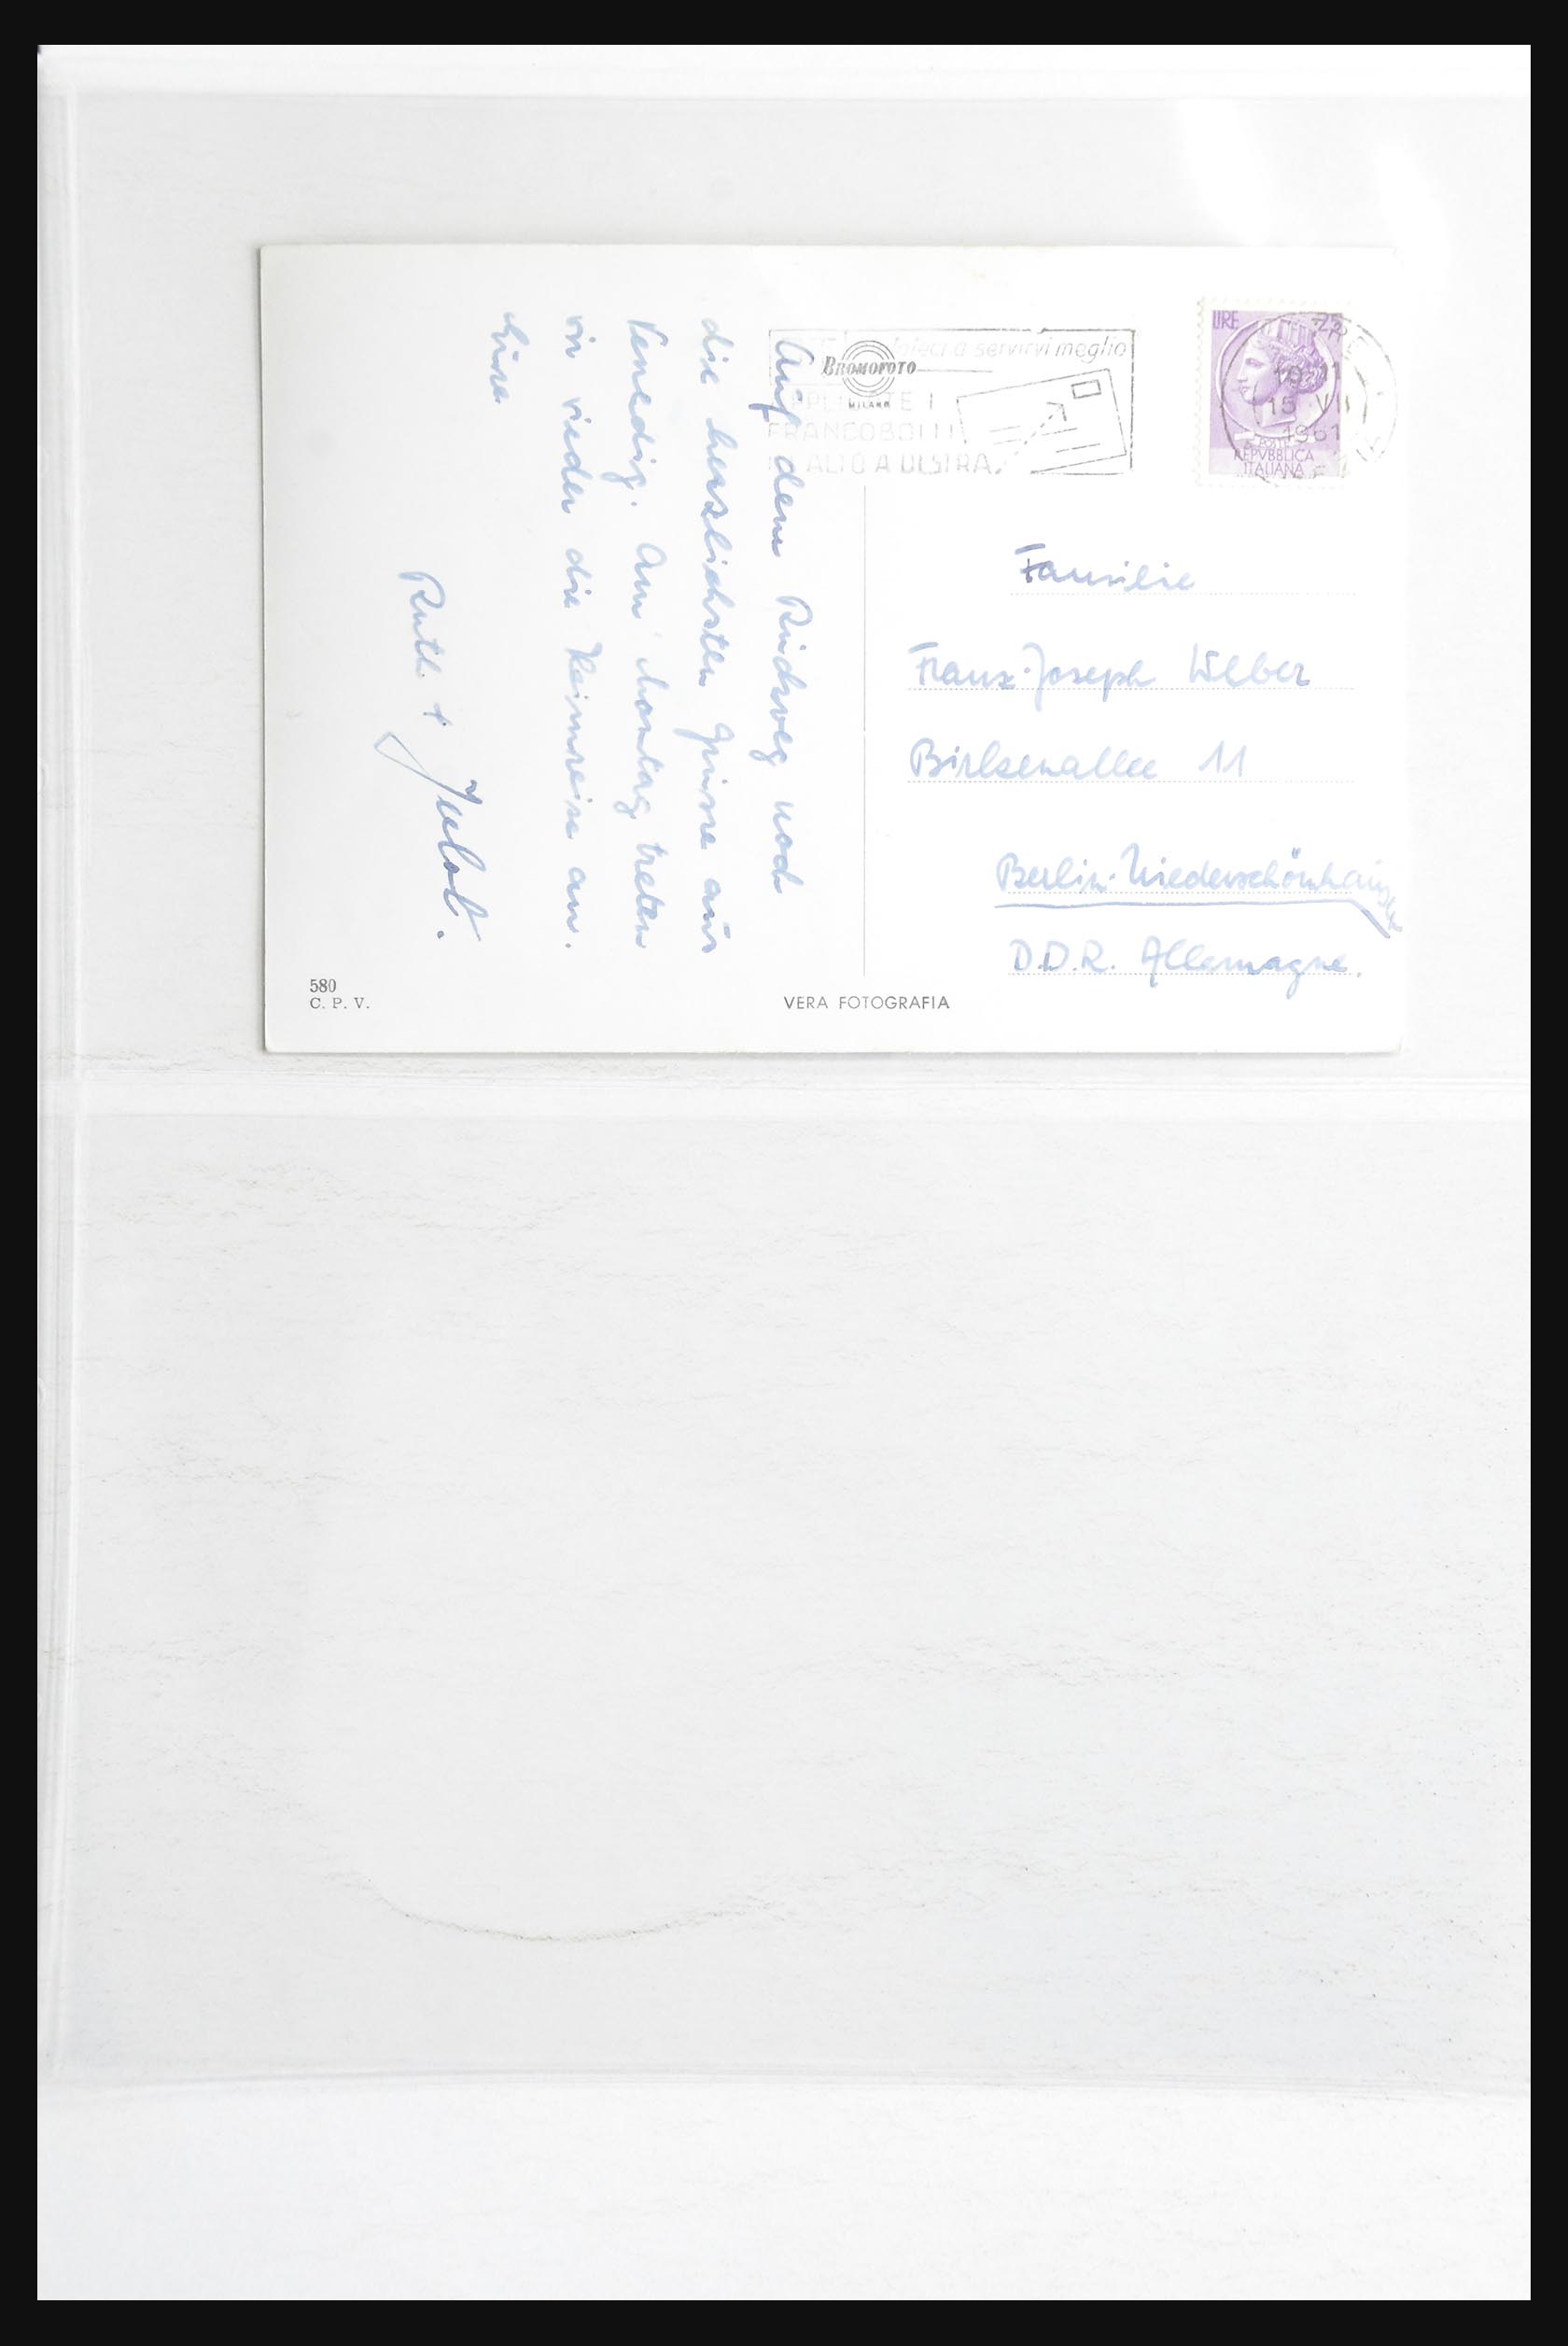 Auf dem Rückweg noch
die herzlichsten Grüsse aus
Venedig. Am Montag treten
wir wieder die Heimreise an.
Ruth +
aiutateci a servirvi meglio
BROMOFOTO
MILANO
APPLICATE I
FRANCOBOLLI
IN ALTO A DESTRA
LIRE 25
19-11
15 VI
1961
POSTE
REPVBBLICA
ITALIANA
Familie
Franz-Joseph Weber
11
Berlin-Niederschönhausen
D.D.R. Allemagne.
580
C. P. V.
VERA FOTOGRAFIA